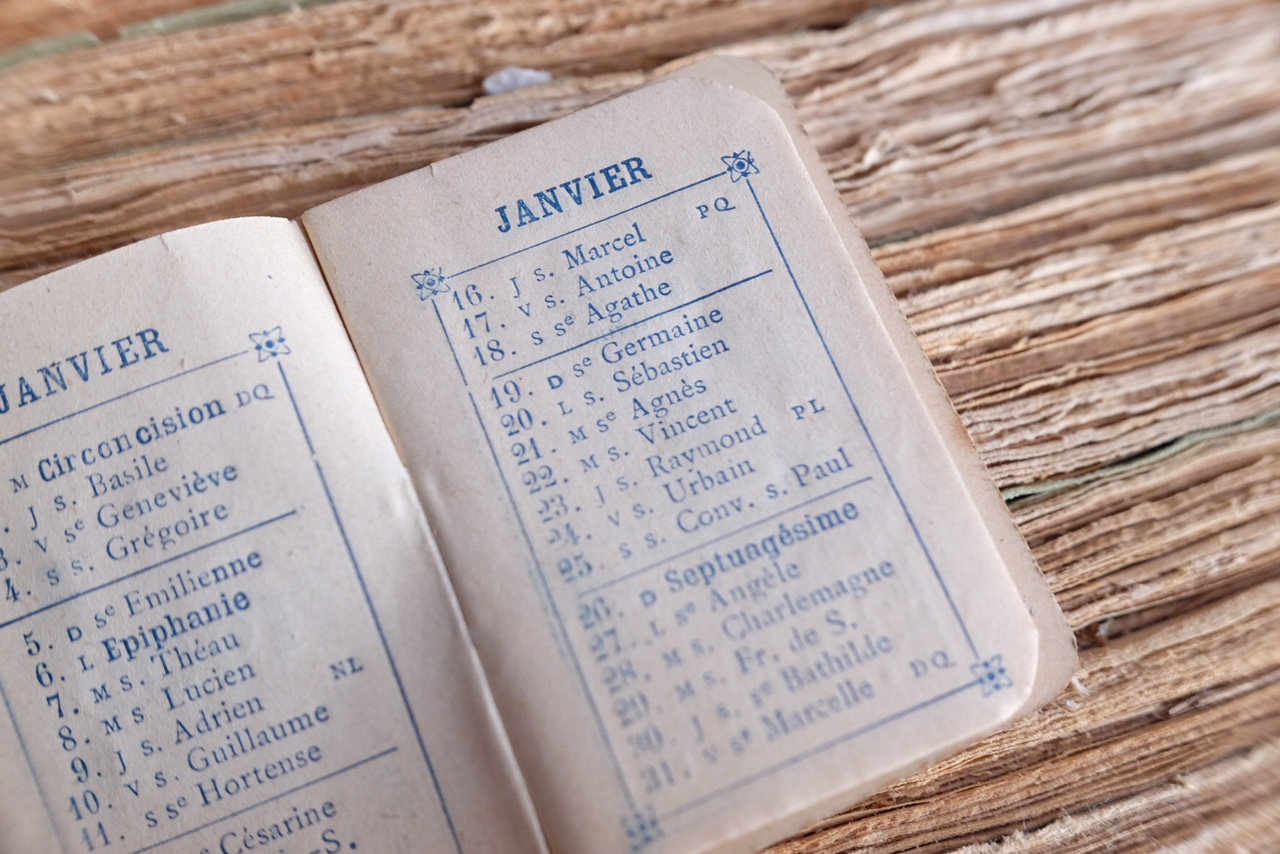 JANVIER
M Circoncision DQ
J s. Basile
3. V sᵉ Geneviève
4. S s. Grégoire
5. D sᵉ Emilienne
6. L Epiphanie
7. M s. Théau
8. M s Lucien
9. J s. Adrien NL
10. V s. Guillaume
11. S sᵉ Hortense
Césarine
S.
JANVIER
16. J s. Marcel PQ
17. V s. Antoine
18. S sᵉ Agathe
19. D sᵉ Germaine
20. L s. Sébastien
21. M sᵉ Agnès
22. M s. Vincent
23. J s. Raymond PL
24. V s. Urbain
25. S s. Conv. s. Paul
26. D Septuagésime
27. L sᵉ Angèle
28. M s. Charlemagne
29. M s. Fr. de S.
30. J s. sᵉ Bathilde
31. V sᵉ Marcelle DQ